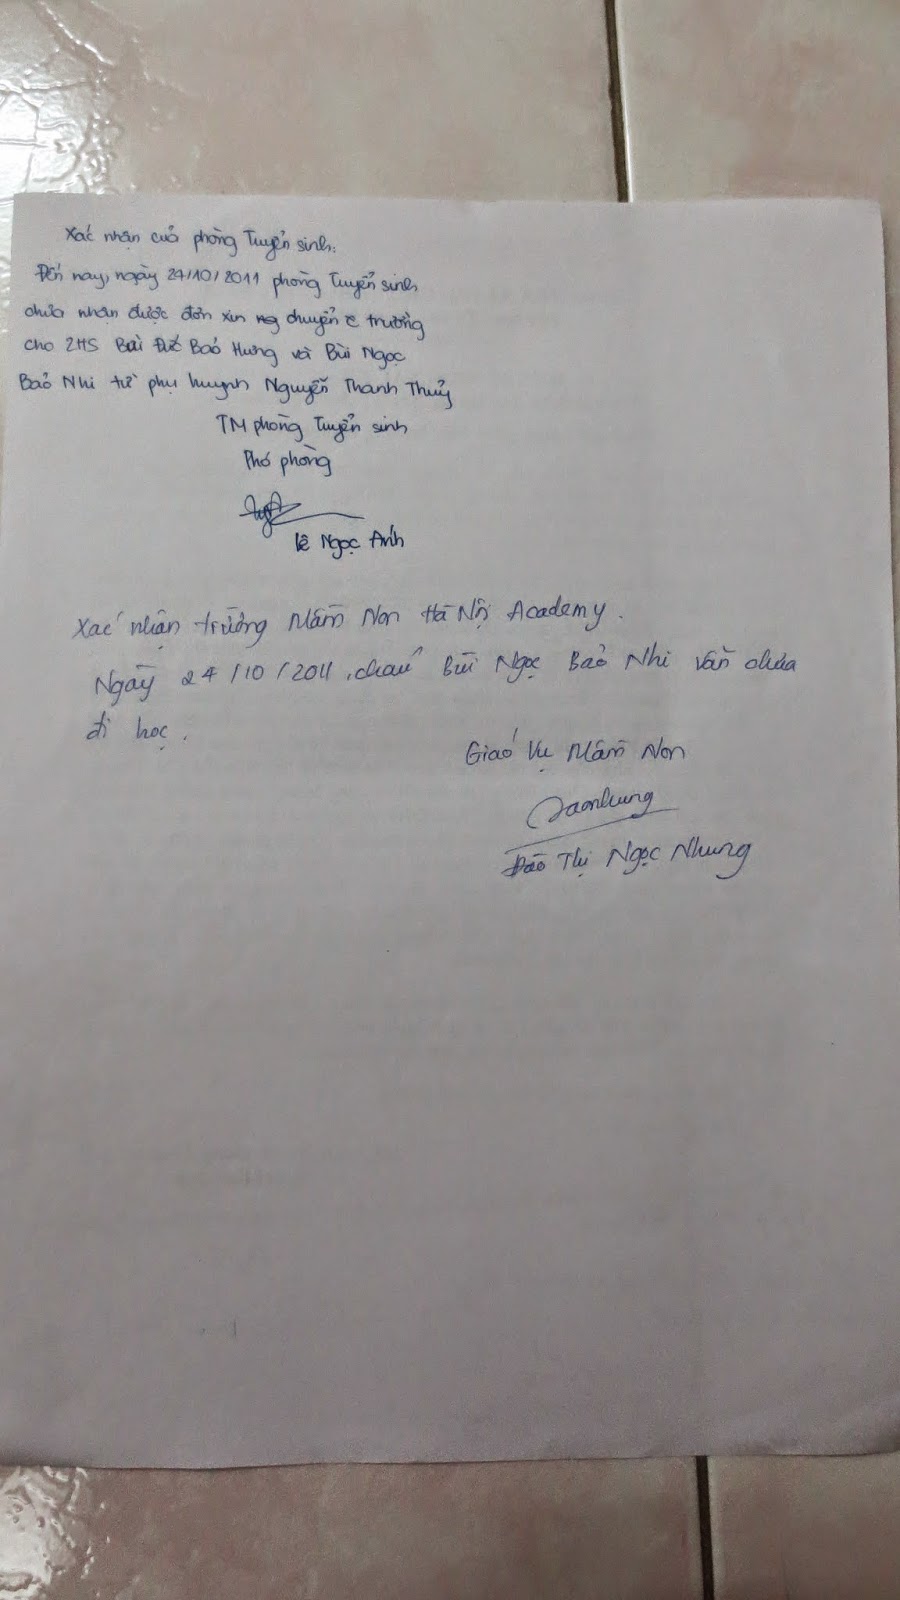 Xác nhận của phòng Tuyển sinh:
Đến nay, ngày 24/10/2011 phòng Tuyển sinh
chưa nhận được đơn xin chuyển trường
cho 2HS Bùi Đức Bảo Hưng và Bùi Ngọc
Bảo Nhi từ phụ huynh Nguyễn Thanh Thuỷ
TM phòng Tuyển sinh
Phó phòng
Lê Ngọc Ánh
Xác nhận trường Mầm Non Hà Nội Academy.
Ngày 24/10/2011, cháu Bùi Ngọc Bảo Nhi vẫn chưa
đi học.
Giáo Vụ Mầm Non
Đào Thị Ngọc Nhung